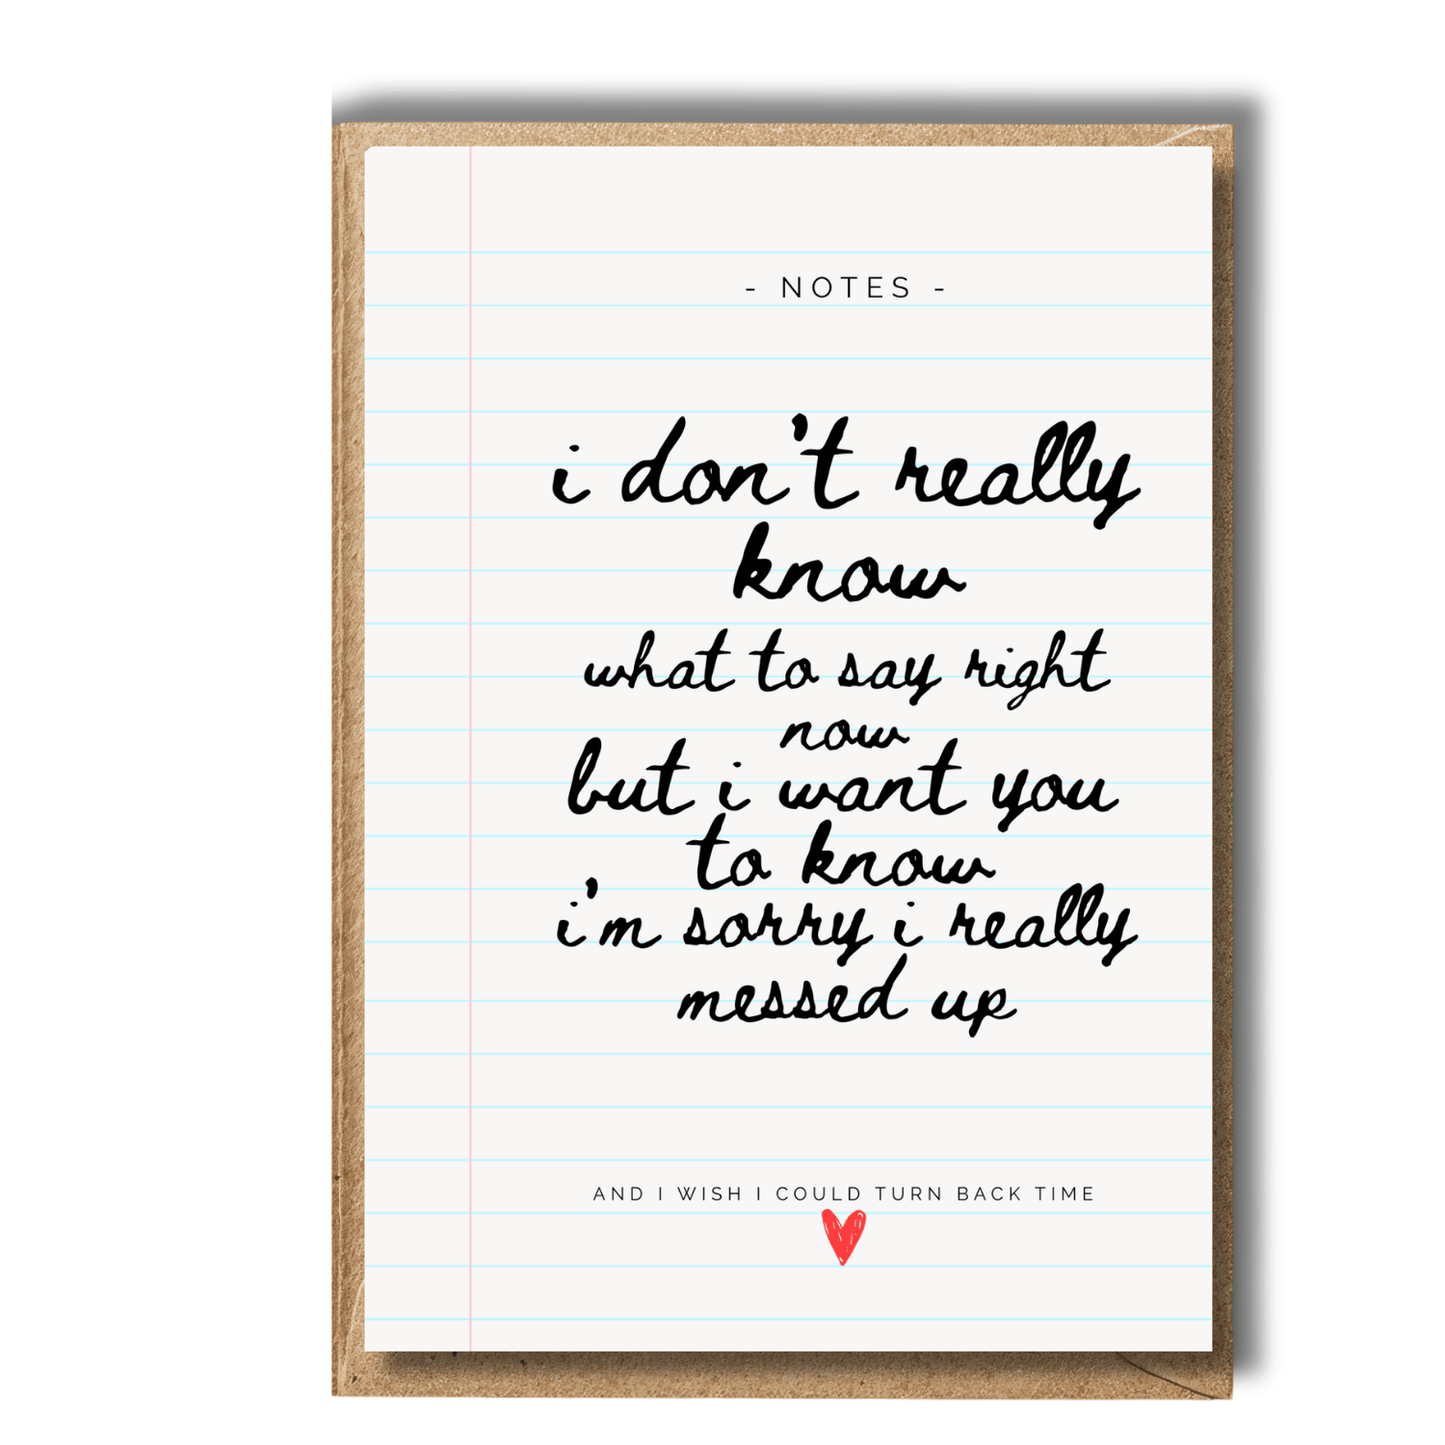 - NOTES -
i don't really
know
what to say right
now
but i want you
to know
i'm sorry i really
messed up
AND I WISH I COULD TURN BACK TIME